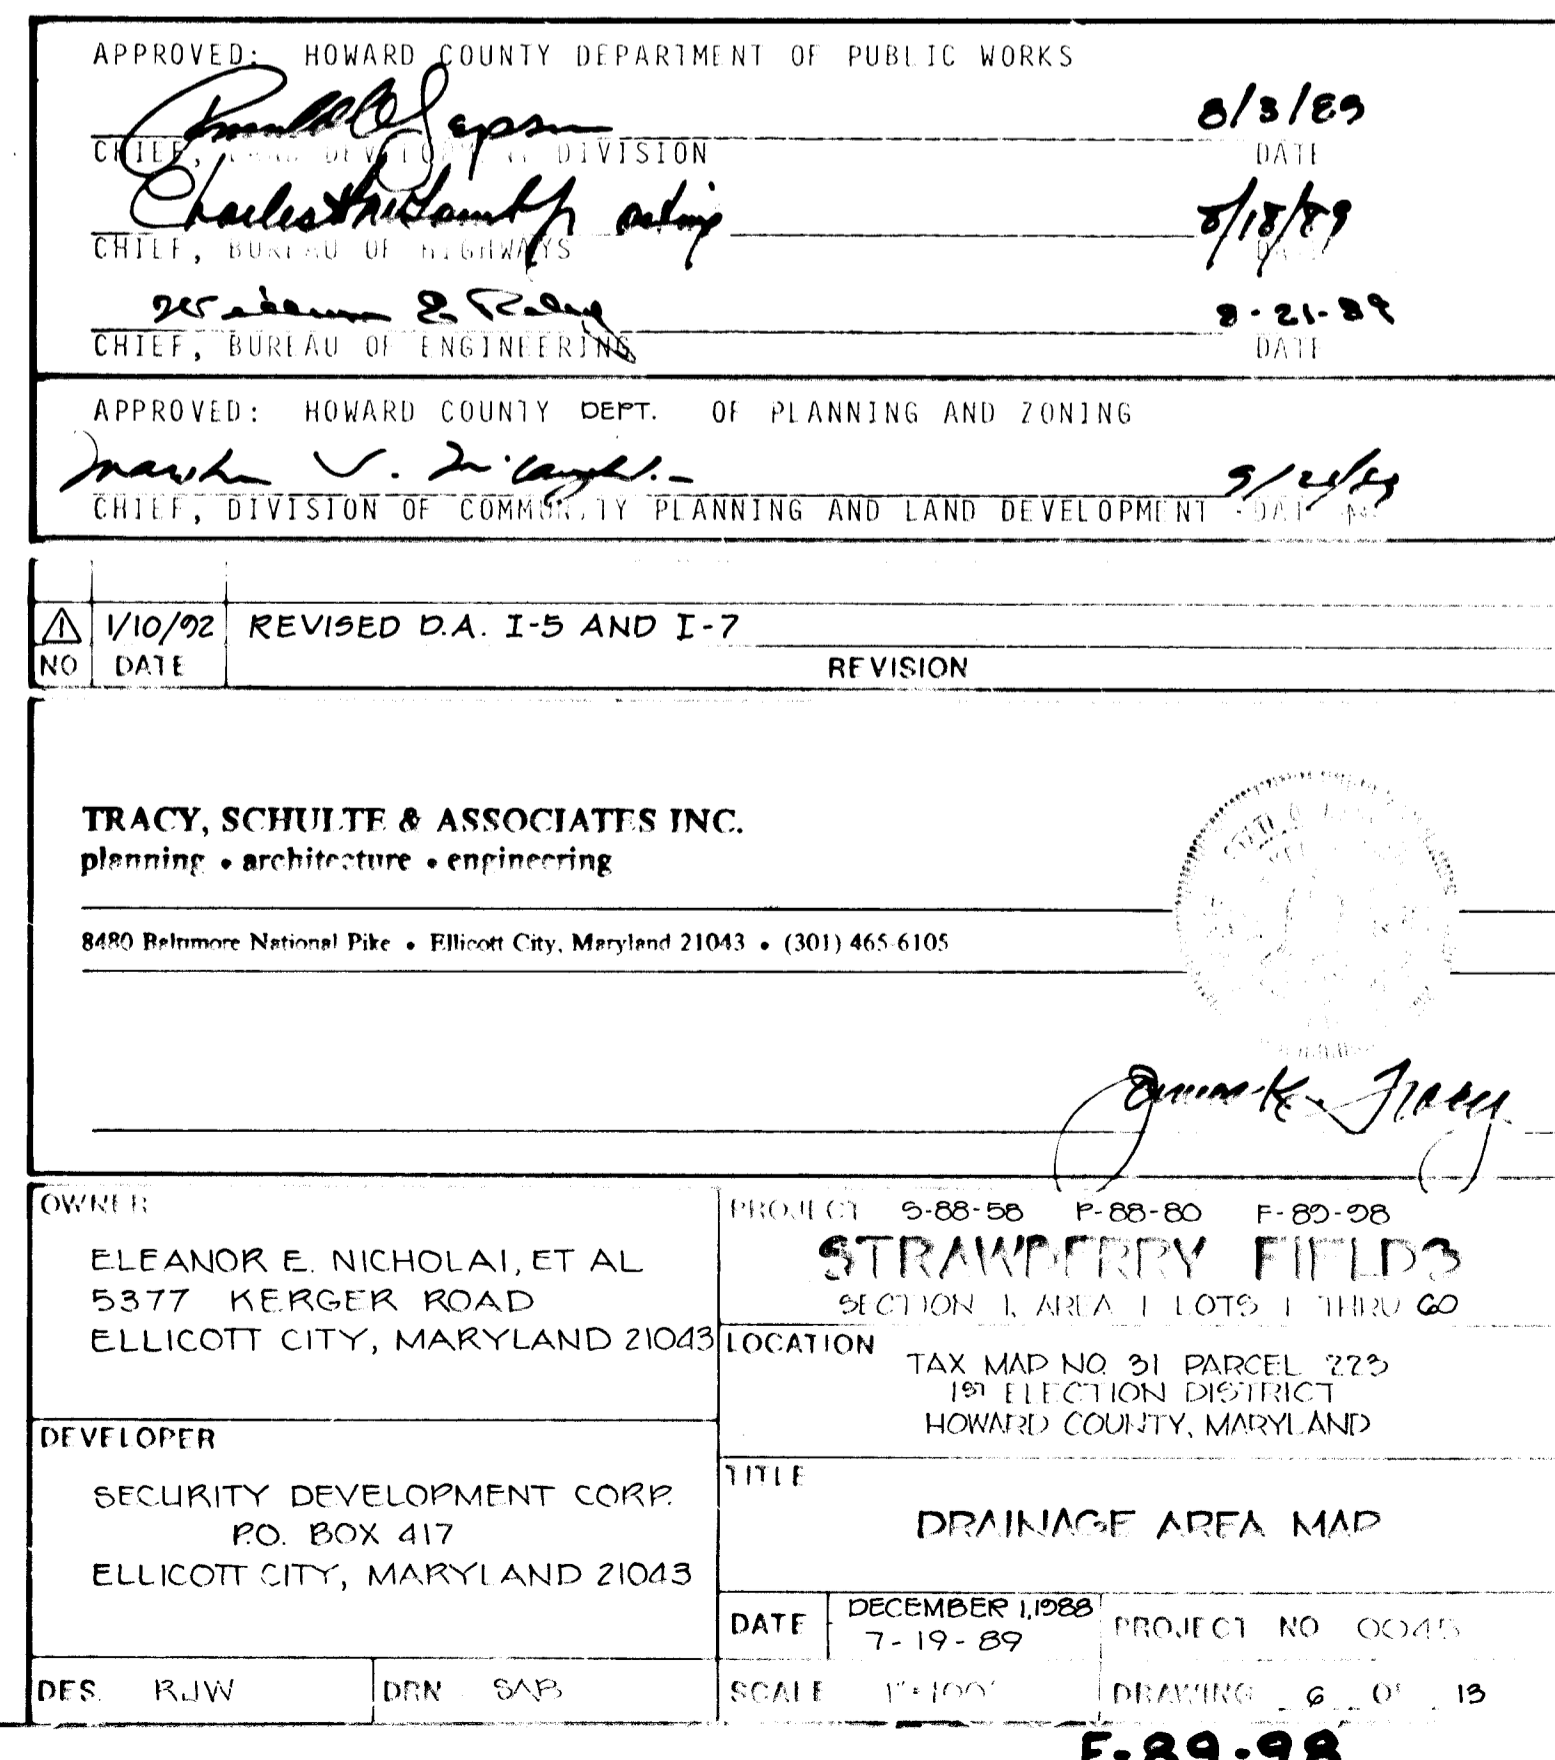 APPROVED: HOWARD COUNTY DEPARTMENT OF PUBLIC WORKS
8/3/89
CHIEF, LAND DEVELOPMENT DIVISION DATE
acting 8/18/89
CHIEF, BUREAU OF HIGHWAYS DATE
William E. Riley 8-21-89
CHIEF, BUREAU OF ENGINEERING DATE
APPROVED: HOWARD COUNTY DEPT. OF PLANNING AND ZONING
CHIEF, DIVISION OF COMMUNITY PLANNING AND LAND DEVELOPMENT DATE
1 1/10/92 REVISED D.A. I-5 AND I-7
NO DATE REVISION
TRACY, SCHULTE & ASSOCIATES INC.
planning • architecture • engineering
8480 Baltimore National Pike • Ellicott City, Maryland 21043 • (301) 465-6105
James K. Tracy
OWNER
ELEANOR E. NICHOLAI, ET AL
5377 KERGER ROAD
ELLICOTT CITY, MARYLAND 21043
DEVELOPER
SECURITY DEVELOPMENT CORP.
P.O. BOX 417
ELLICOTT CITY, MARYLAND 21043
DES. RJW DRN SAB
PROJECT S-88-58 P-88-80 F-89-98
STRAWBERRY FIELDS
SECTION 1, AREA 1 LOTS 1 THRU 60
LOCATION
TAX MAP NO. 31 PARCEL 223
1ST ELECTION DISTRICT
HOWARD COUNTY, MARYLAND
TITLE
DRAINAGE AREA MAP
DATE DECEMBER 1, 1988
7-19-89
PROJECT NO 0045
SCALE 1"=100'
DRAWING 6 OF 13
F-89-98